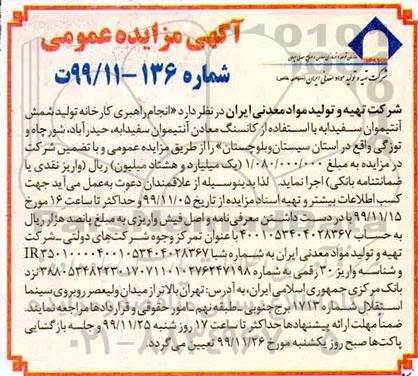 آگهی مزایده عمومی
شماره ۱۳۶-۹۹/۱۱ت
IMPASCO
شرکت تهیه و تولید مواد معدنی ایران (سهامی خاص)
شرکت تهیه و تولید مواد معدنی ایران در نظر دارد «انجام راهبری کارخانه تولید شمش
آنتیموان سفیدابه با استفاده از کانسنگ معادن آنتیموان سفیدابه، حیدرآباد، شورچاه و
توزگی واقع در استان سیستان وبلوچستان» را از طریق مزایده عمومی و با تضمین شرکت
در مزایده به مبلغ ۱/۰۸۰/۰۰۰/۰۰۰ (یک میلیارد و هشتاد میلیون) ریال (واریز نقدی یا
ضمانتنامه بانکی) اجرا نماید. لذا بدینوسیله از علاقمندان دعوت به‌عمل می‌آید جهت
کسب اطلاعات بیشتر و تهیه اسناد مزایده از تاریخ ۹۹/۱۱/۰۵ و حداکثر تا ساعت ۱۶ مورخ
۹۹/۱۱/۱۵ با در دست داشتن معرفی‌نامه و اصل فیش واریزی به مبلغ پانصد هزار ریال
به حساب ۴۰۰۱۰۵۳۴۰۴۰۲۸۳۶۷ با عنوان تمرکز وجوه شرکت‌های دولتی_شرکت
تهیه و تولید مواد معدنی ایران به شماره شبا IR۳۵۰۱۰۰۰۰۴۰۰۱۰۵۳۴۰۴۰۲۸۳۶۷
و شناسه واریز ۳۰ رقمی به شماره ۳۸۸۰۵۳۴۸۲۲۳۰۱۷۰۷۱۱۰۱۰۲۷۶۲۴۷۱۹۸ نزد
بانک مرکزی جمهوری اسلامی ایران، به آدرس: تهران بالاتر از میدان ولیعصر روبروی سینما
استقلال شماره ۱۷۱۳ برج جنوبی _طبقه نهم _امور حقوقی و قراردادها مراجعه نمایند.
ضمناً مهلت ارائه پیشنهادها حداکثر تا ساعت ۱۷ روز شنبه ۹۹/۱۱/۲۵ و جلسه بازگشایی
پاکت‌ها صبح روز یکشنبه مورخ ۹۹/۱۱/۲۶ تعیین می‌گردد.